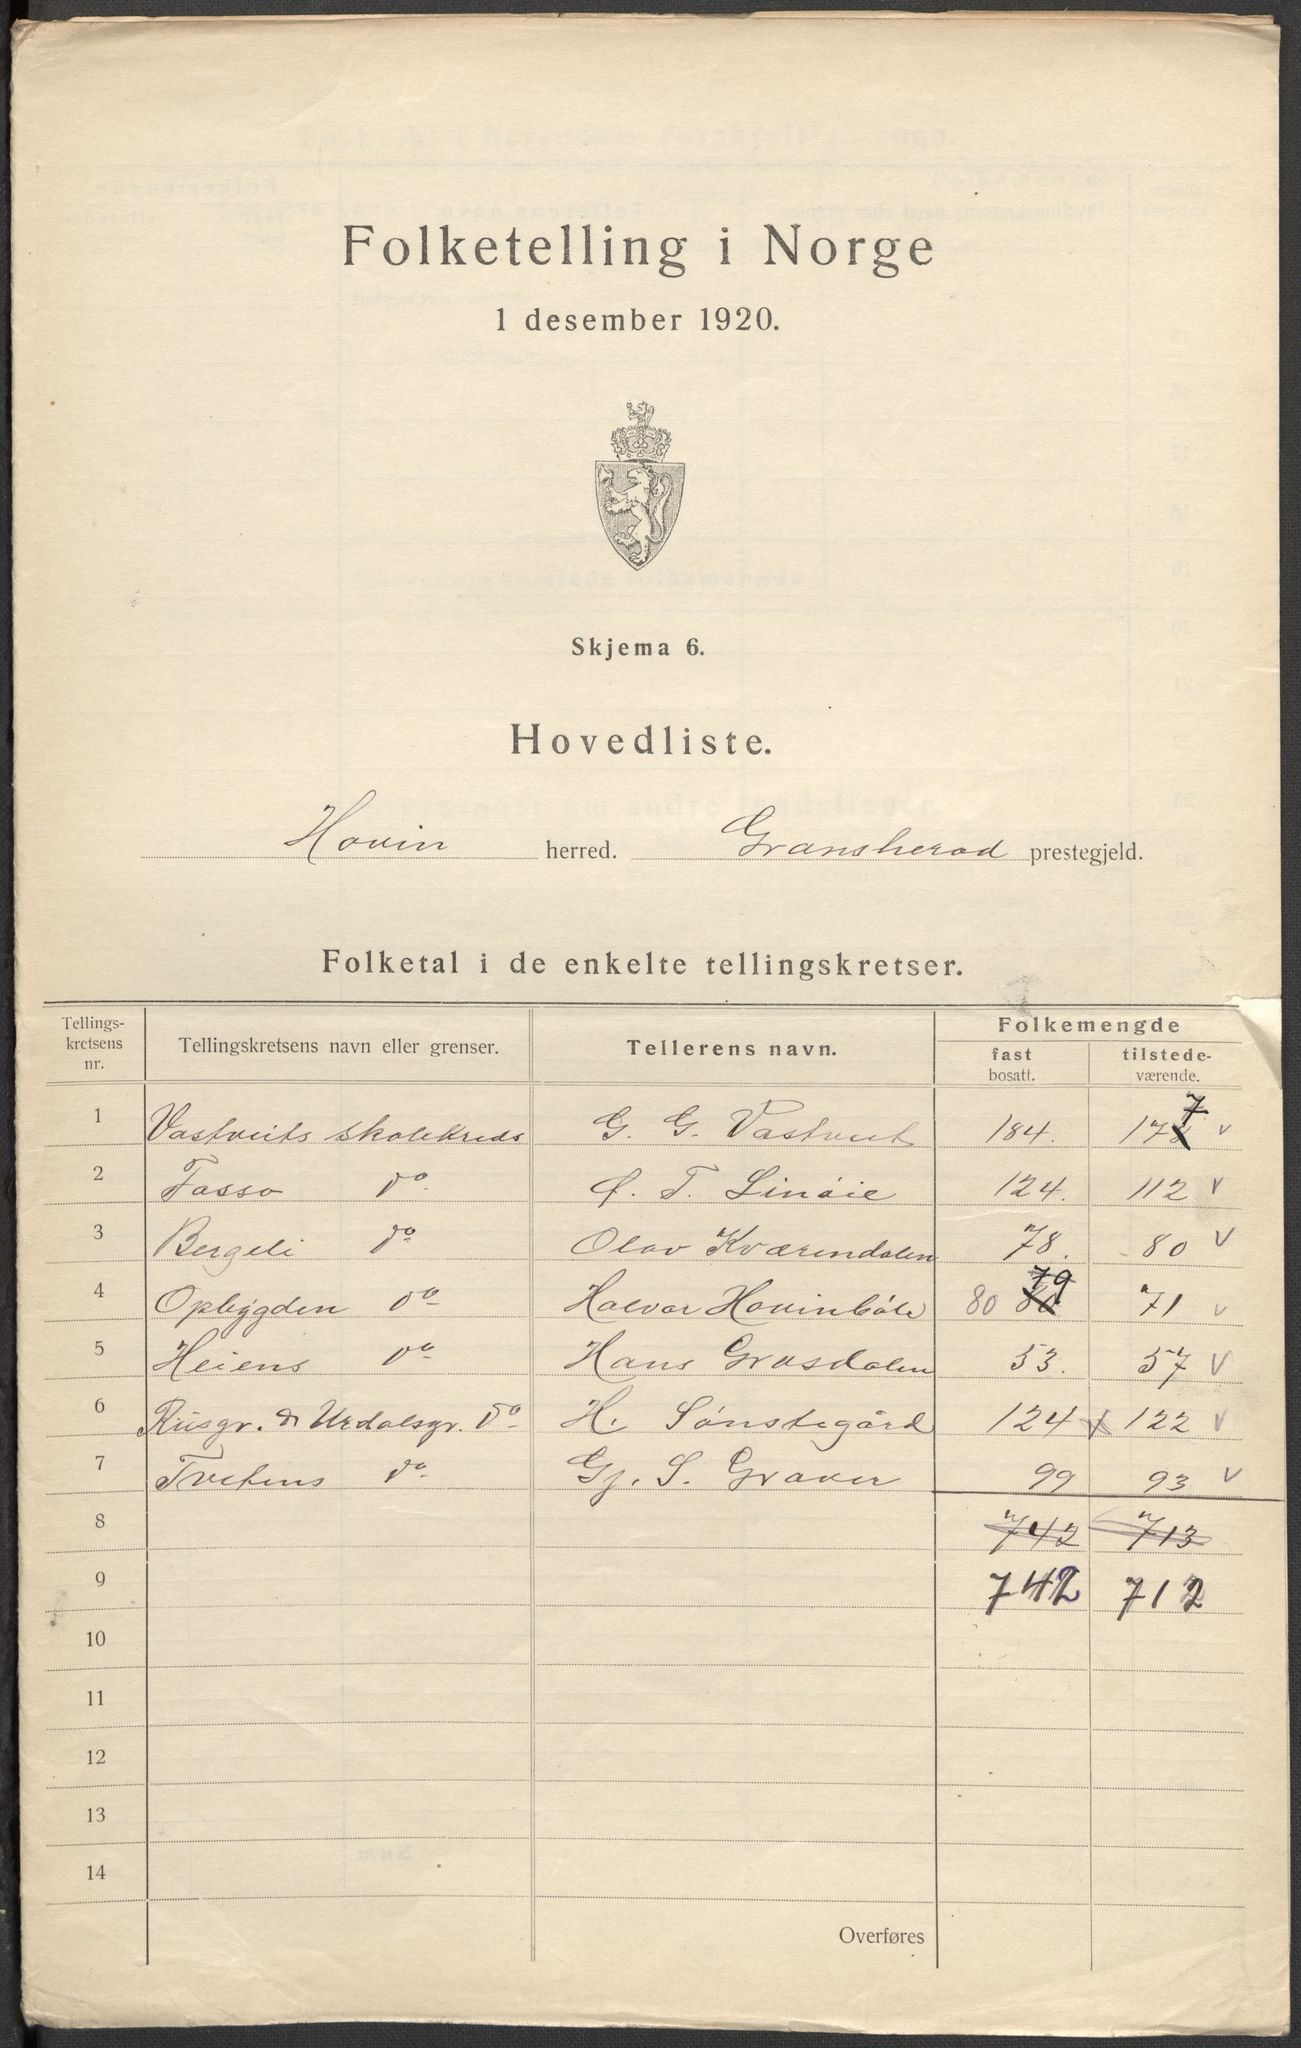 Folketelling i Norge
1 desember 1920.
Skjema 6.
Hovedliste.
Hovin herred. Gransherad prestegjeld.
Folketal i de enkelte tellingskretser.
Tellings-kretsens nr. Tellingskretsens navn eller grenser. Tellerens navn. Folkemengde fast bosatt. tilstede-værende.
1 Vastveits skolekreds G. G. Vastveit 184. 178 7 v
2 Fasso do. T. Linøie 124. 112 v
3 Bergeli do Olav Kværndalen 78. 80 v
4 Opbygden do Halvor Hovinbøle 80 80 79 71 v
5 Heiens do Hans Grøsdalen 53. 57 v
6 Riisgr. & Urdalsgr. do H. Sønstegård 124 122 v
7 Tvetens do. Gj. S. Graver 99 93 v
8 742 713
9 742 712
10
11
12
13
14
Overføres